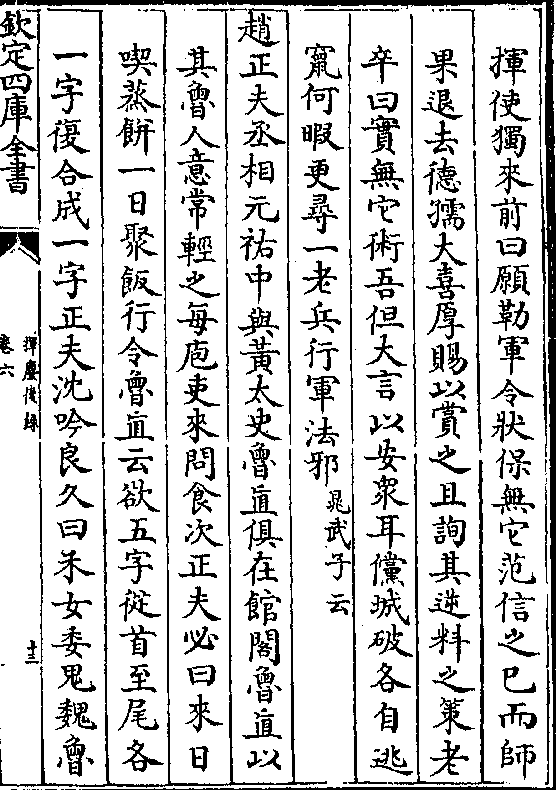 揮使獨來前曰願勒軍令狀保無它范信之已而師
果退去德孺大喜厚賜以賞之且詢其逆料之策老
卒曰實無它術吾但大言以安衆耳儻城破各自逃
竄何暇更尋一老兵行軍法邪晁武子云
趙正夫丞相元祐中與黃太史魯直俱在館閣魯直以
其魯人意常輕之每庖吏來問食次正夫必曰來日
喫蒸餅一日聚飯行令魯直云欲五字從首至尾各
一字復合成一字正夫沈吟良久曰禾女委鬼魏魯
欽定四庫全書
揮麈後録
卷六
十三